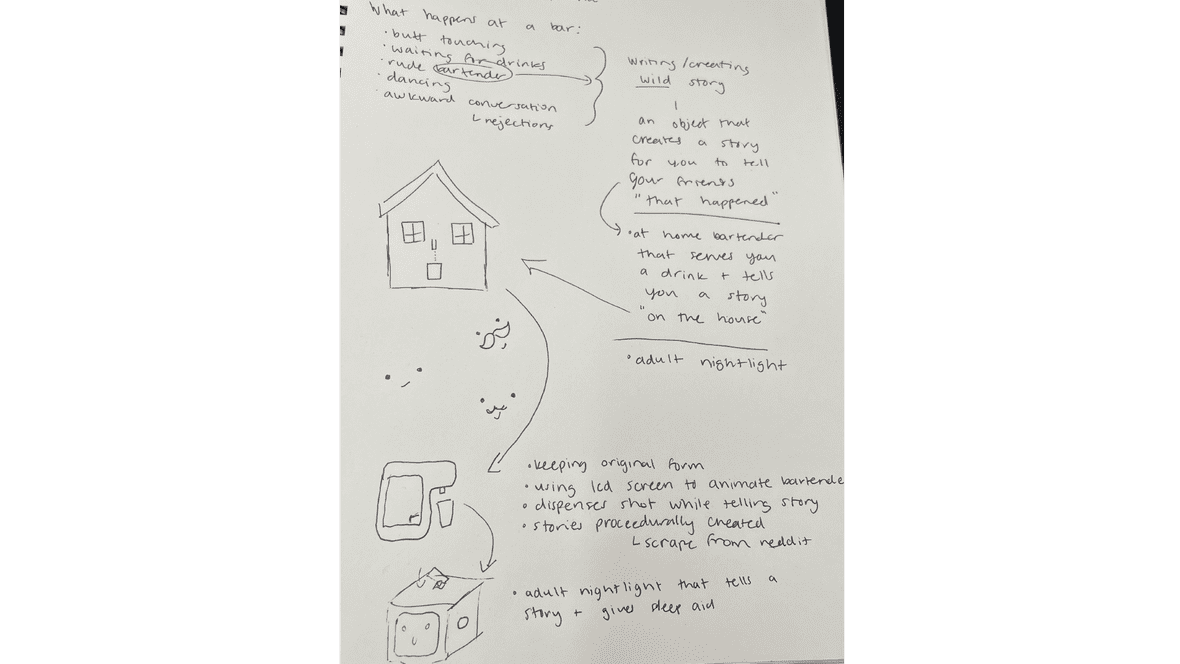 What happens at a bar:
• butt touching
• waiting for drinks
• rude bartender
• dancing
• awkward conversation
↳ rejections
writing/creating
wild story
an object that
creates a story
for you to tell
your friends
"that happened"
• at home bartender
that serves you
a drink + tells
you a story
"on the house"
• adult nightlight
• keeping original form
• using lcd screen to animate bartende
• dispenses shot while telling story
• stories proceedurally created
↳ scrape from reddit
• adult nightlight that tells a
story + gives sleep aid